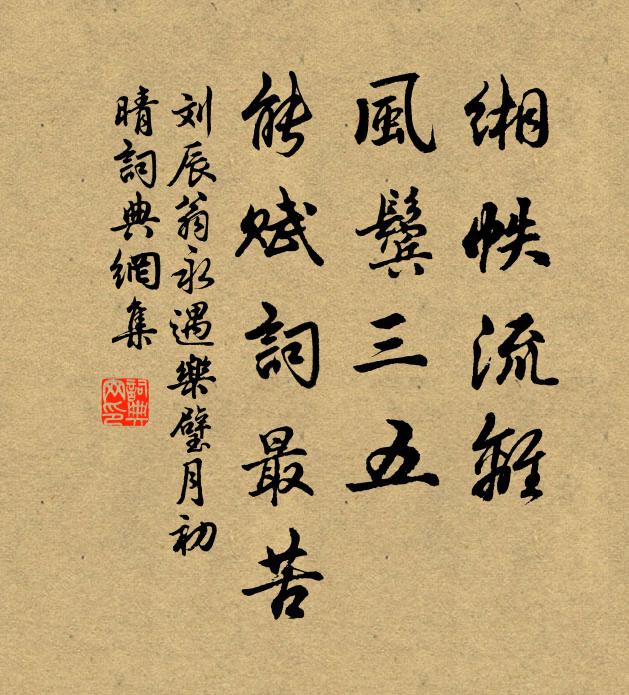 緗帙流離
風鬟三五
能賦詞最苦
刘辰翁永遇樂璧月初
晴詞典網集
詞典網印